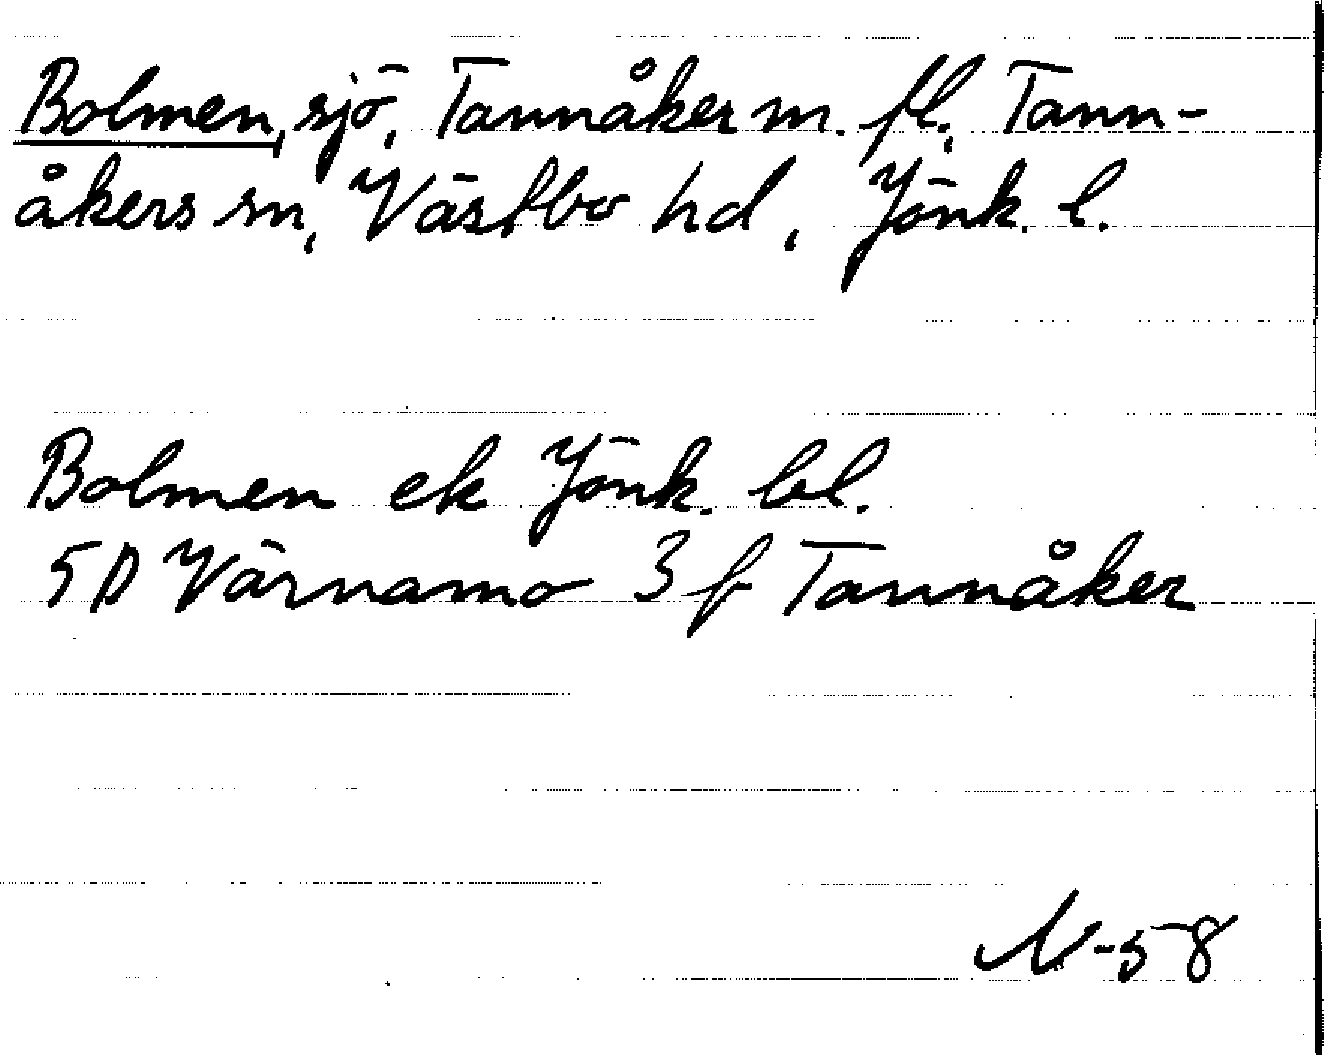 Bolmen, sjö, Tannåker m. fl., Tann-
åkers sn, Västbo hd, Jönk. l.
Bolmen ek Jönk. bl.
5D Värnamo 3 f Tannåker
N-58